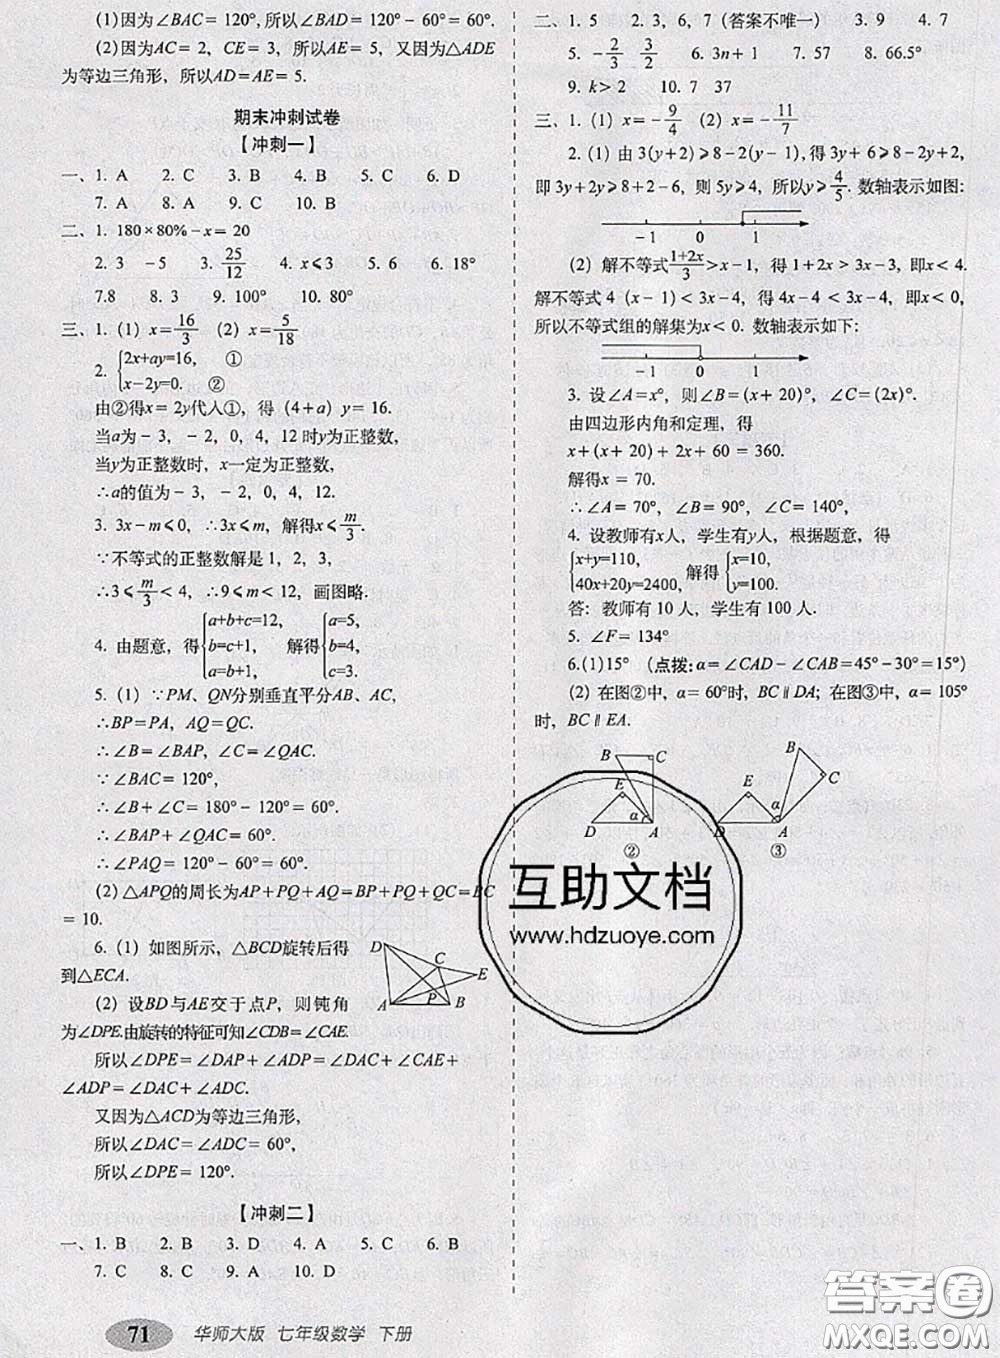 (1)因为∠BAC=120°,所以∠BAD=120°-60°=60°.
(2)因为AC=2, CE=3, 所以AE=5, 又因为△ADE
为等边三角形, 所以AD=AE=5.
期末冲刺试卷
【冲刺一】
一、1. A 2. C 3. B 4. B 5. C 6. D
7. A 8. A 9. C 10. B
二、1. 180×80%-x=20
2. 3 -5 3. 25/12 4. x≤3 5. 6 6. 18°
7.8 8. 3 9. 100° 10. 100°
三、1. (1) x=16/3 (2) x=5/18
2. {2x+ay=16, ①
x-2y=0. ②
由②得x=2y代人①, 得 (4+a) y=16.
当a为-3, -2, 0, 4, 12 时y为正整数,
当y为正整数时, x一定为正整数,
∴a的值为-3, -2, 0, 4, 12.
3. 3x-m≤0, ∴3x≤m, 解得x≤m/3.
∵不等式的正整数解是 1, 2, 3,
∴3≤m/3<4, ∴9≤m<12, 画图略.
4. 由题意, 得{a+b+c=12, b=c+1, a=b+1, 解得{a=5, b=4, c=3.
5. (1) ∵PM、QN分别垂直平分AB、AC,
∴BP=PA, AQ=QC.
∴∠B=∠BAP, ∠C=∠QAC.
∵∠BAC=120°,
∴∠B+∠C=180°-120°=60°.
∴∠BAP+∠QAC=60°.
∴∠PAQ=120°-60°=60°.
(2) △APQ的周长为AP+PQ+AQ=BP+PQ+QC=BC
=10.
6. (1) 如图所示, △BCD旋转后得
到△ECA.
(2) 设BD与AE交于点P, 则钝角
为∠DPE.由旋转的特征可知∠CDB=∠CAE.
所以∠DPE=∠DAP+∠ADP=∠DAC+∠CAE+
∠ADP=∠DAC+∠ADC.
又因为△ACD为等边三角形,
所以∠DAC=∠ADC=60°,
所以∠DPE=120°.
D
C
E
A
P
B
【冲刺二】
一、1. B 2. B 3. D 4. A 5. C 6. B
7. C 8. C 9. A 10. D
71 华师大版 七年级数学 下册
二、1. 5 2. 3, 6, 7 (答案不唯一) 3. 9 4. 7
5. -2/3 3/2 6. 3n+1 7. 57 8. 66.5°
9. k>2 10. 7 37
三、1. (1) x=-9/4 (2) x=-11/7
2. (1) 由 3(y+2)≥8-2(y-1),得3y+6≥8-2y+2,
即 3y+2y≥8+2-6, 则 5y≥4, 所以y≥4/5. 数轴表示如图:
-1 0 1
(2) 解不等式(1+2x)/3>x-1, 得 1+2x>3x-3, 即x<4.
解不等式 4 (x-1)<3x-4, 得 4x-4<3x-4, 即x<0,
所以不等式组的解集为x<0. 数轴表示如下:
-1 0 1
3. 设∠A=x°, 则∠B=(x+20)°, ∠C=(2x)°.
由四边形内角和定理, 得
x+(x+20)+2x+60=360.
解得x=70.
∴∠A=70°, ∠B=90°, ∠C=140°,
4. 设教师有x人, 学生有y人, 根据题意, 得
{x+y=110, 40x+20y=2400, 解得{x=10, y=100.
答: 教师有 10 人, 学生有 100 人.
5. ∠F=134°
6.(1)15° (点拨: α=∠CAD-∠CAB=45°-30°=15°)
(2) 在图②中, α=60°时, BC∥DA; 在图③中, α=105°
时, BC∥EA.
B
C
E
α
D
A
②
B
C
E
α
D
A
③
互助文档
www.hdzuoye.com
答案圈
MXQE.COM